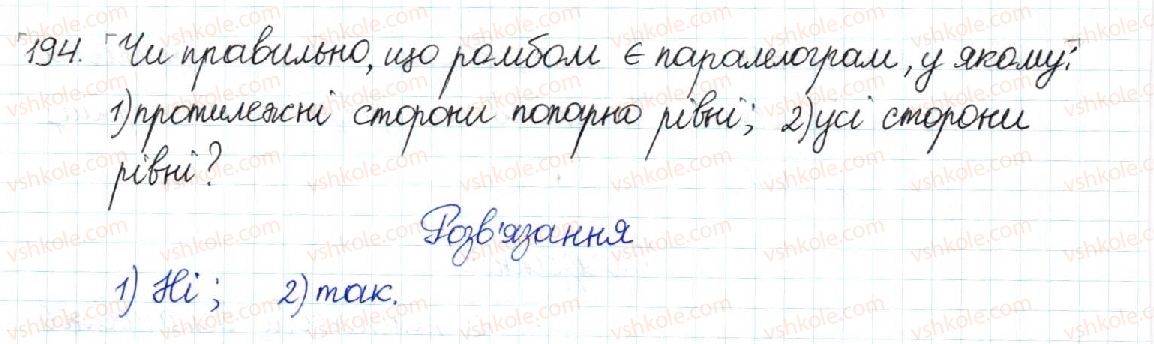 194. Чи правильно, що ромбом є паралелограм, у якому:
1) протилежні сторони попарно рівні; 2) усі сторони
рівні?
Розв'язання
1) Ні; 2) так.